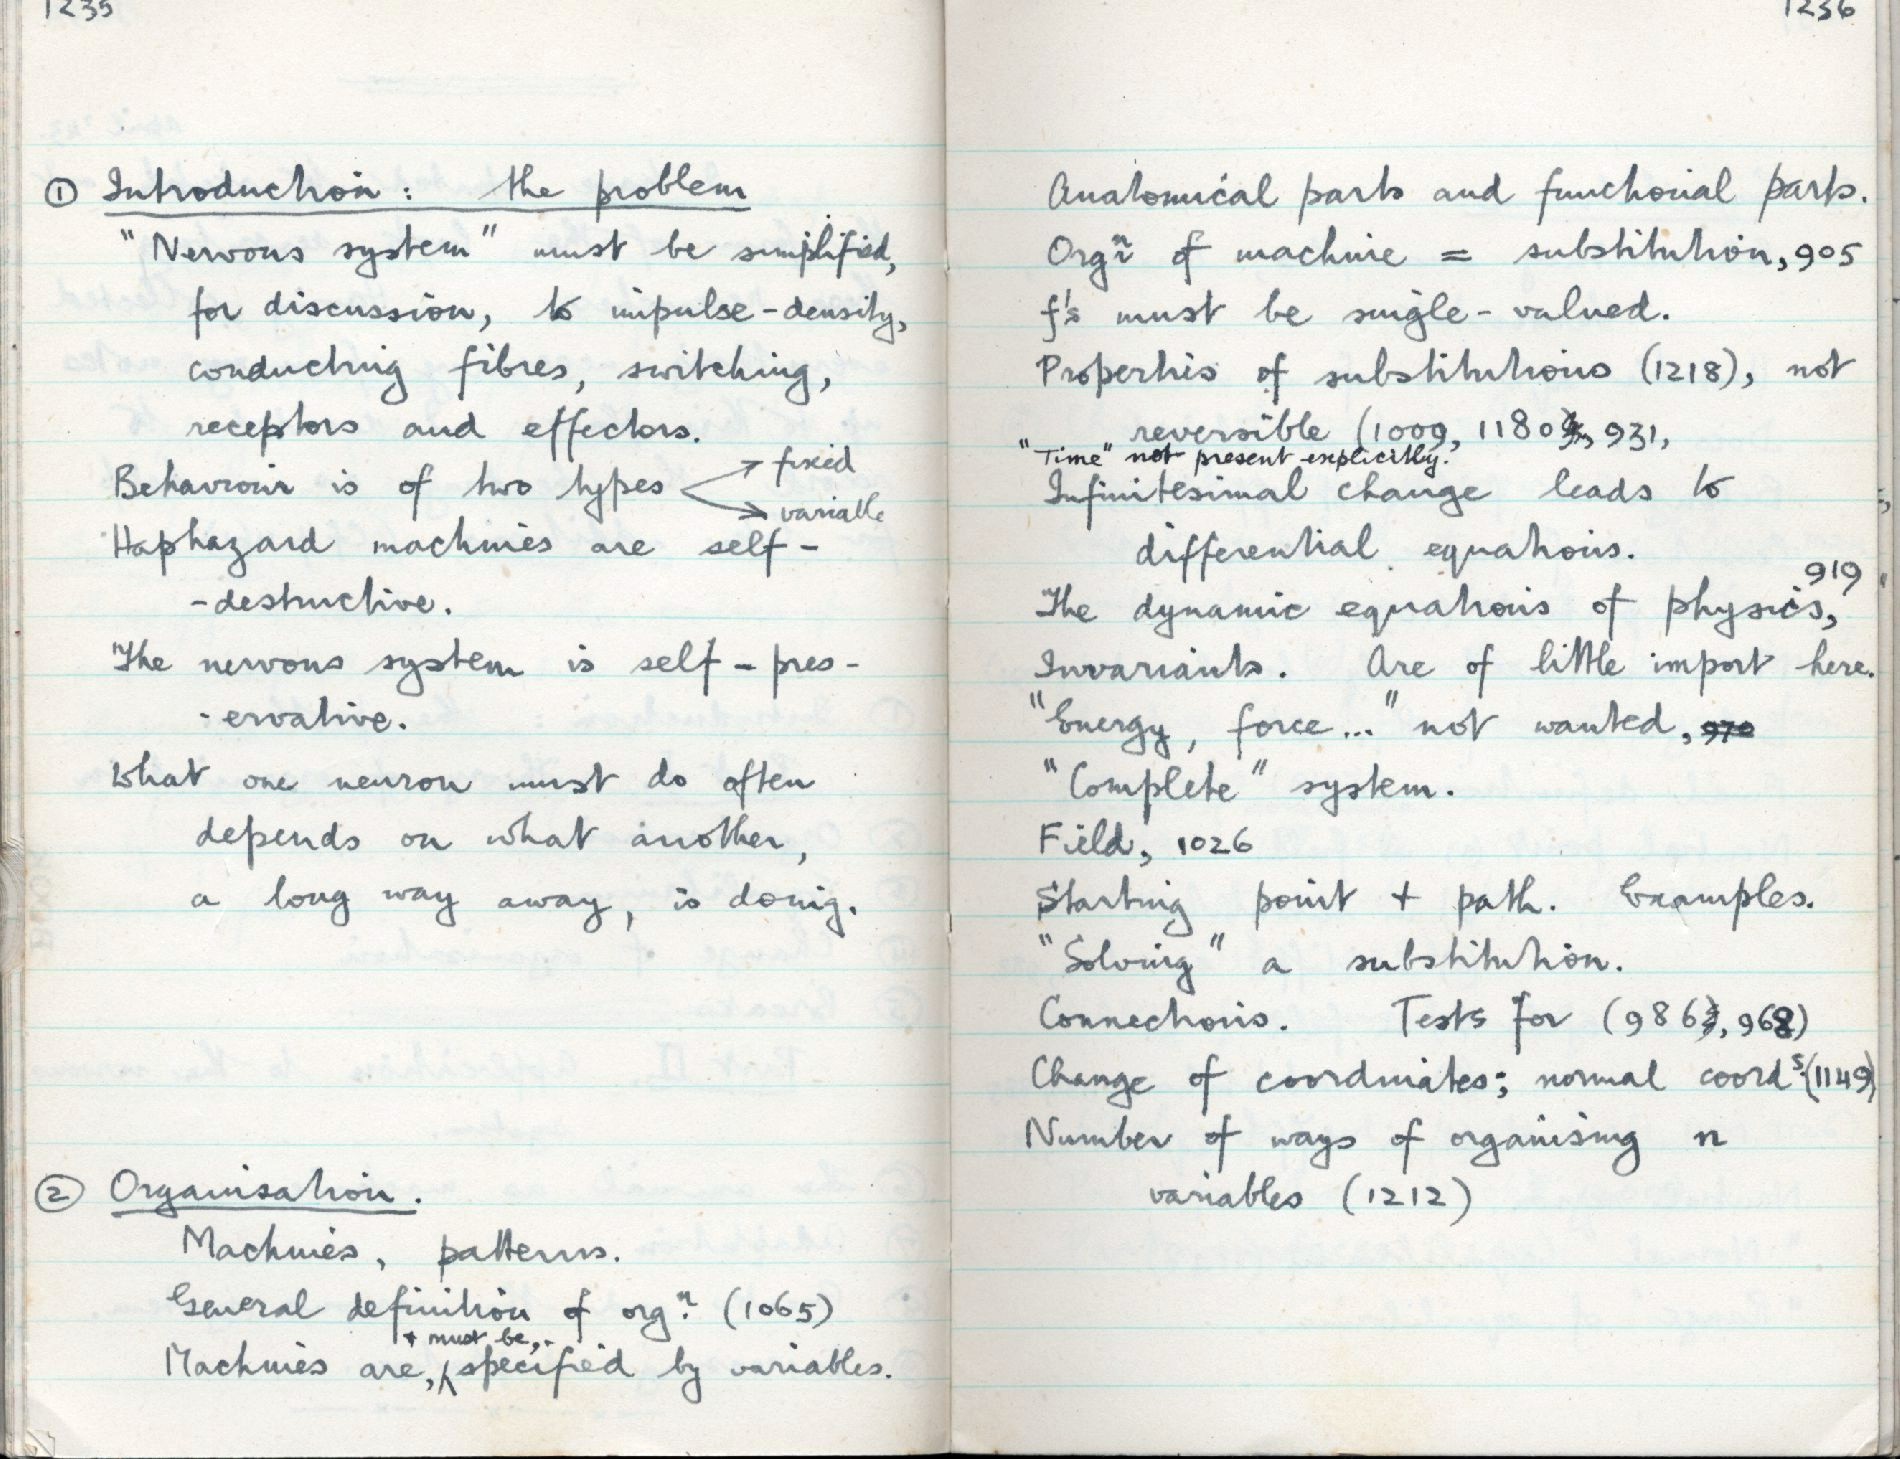 1235
① Introduction: the problem
"Nervous system" must be simplified,
for discussion, to impulse-density,
conducting fibres, switching,
receptors and effectors.
Behaviour is of two types → fixed
→ variable
Haphazard machines are self-
-destructive.
The nervous system is self-pres-
-ervative.
What one neuron must do often
depends on what another,
a long way away, is doing.
② Organisation.
Machines, patterns.
General definition of orgⁿ. (1065)
+ must be,
Machines are, specified by variables.
1236
Anatomical parts and functional parts.
Orgⁿ of machine = substitution, 905
f's must be single-valued.
Properties of substitutions (1218), not
reversible (1009, 1180), 931,
"Time" not present explicitly.
Infinitesimal change leads to
differential equations.
The dynamic equations of physics, 919
Invariants. Are of little import here.
"Energy, force..." not wanted, 970
"Complete" system.
Field, 1026
Starting point + path. Examples.
"Solving" a substitution.
Connections. Tests for (986, 968)
Change of coordinates; normal coordˢ. (1149)
Number of ways of organising n
variables (1212)